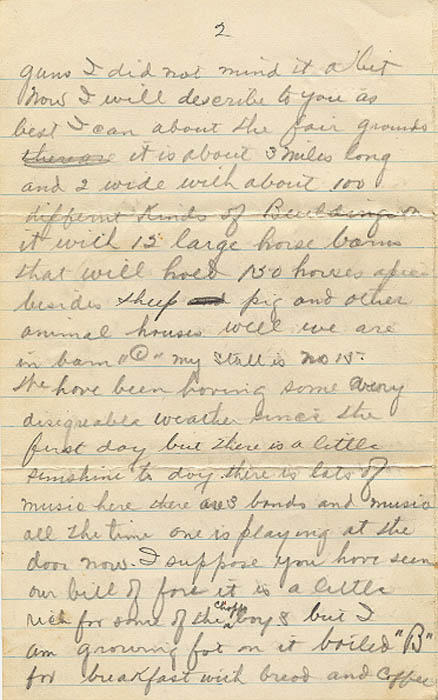 2
guns I did not mind it a bit
Now I will describe to you as
best I can about the fair grounds
it is about 3 miles long
and 2 wide with about 100
differnt kinds of Beuldings on
it with 12 large horse barns
that will hold 150 horses apiec
besides sheep and pig and other
animal houses well we are
in barn "C" my stall is no 15.
We have been having some very
disigreable weather since the
first day but there is a little
sunshine to day there is lots of
music here there are 3 bands and music
all the time one is playing at the
door now. I suppose you have seen
our bill of fare it is a little
rich for some of the boys but I
am growing fat on it boiled "B"
for breakfast with bread and coffee